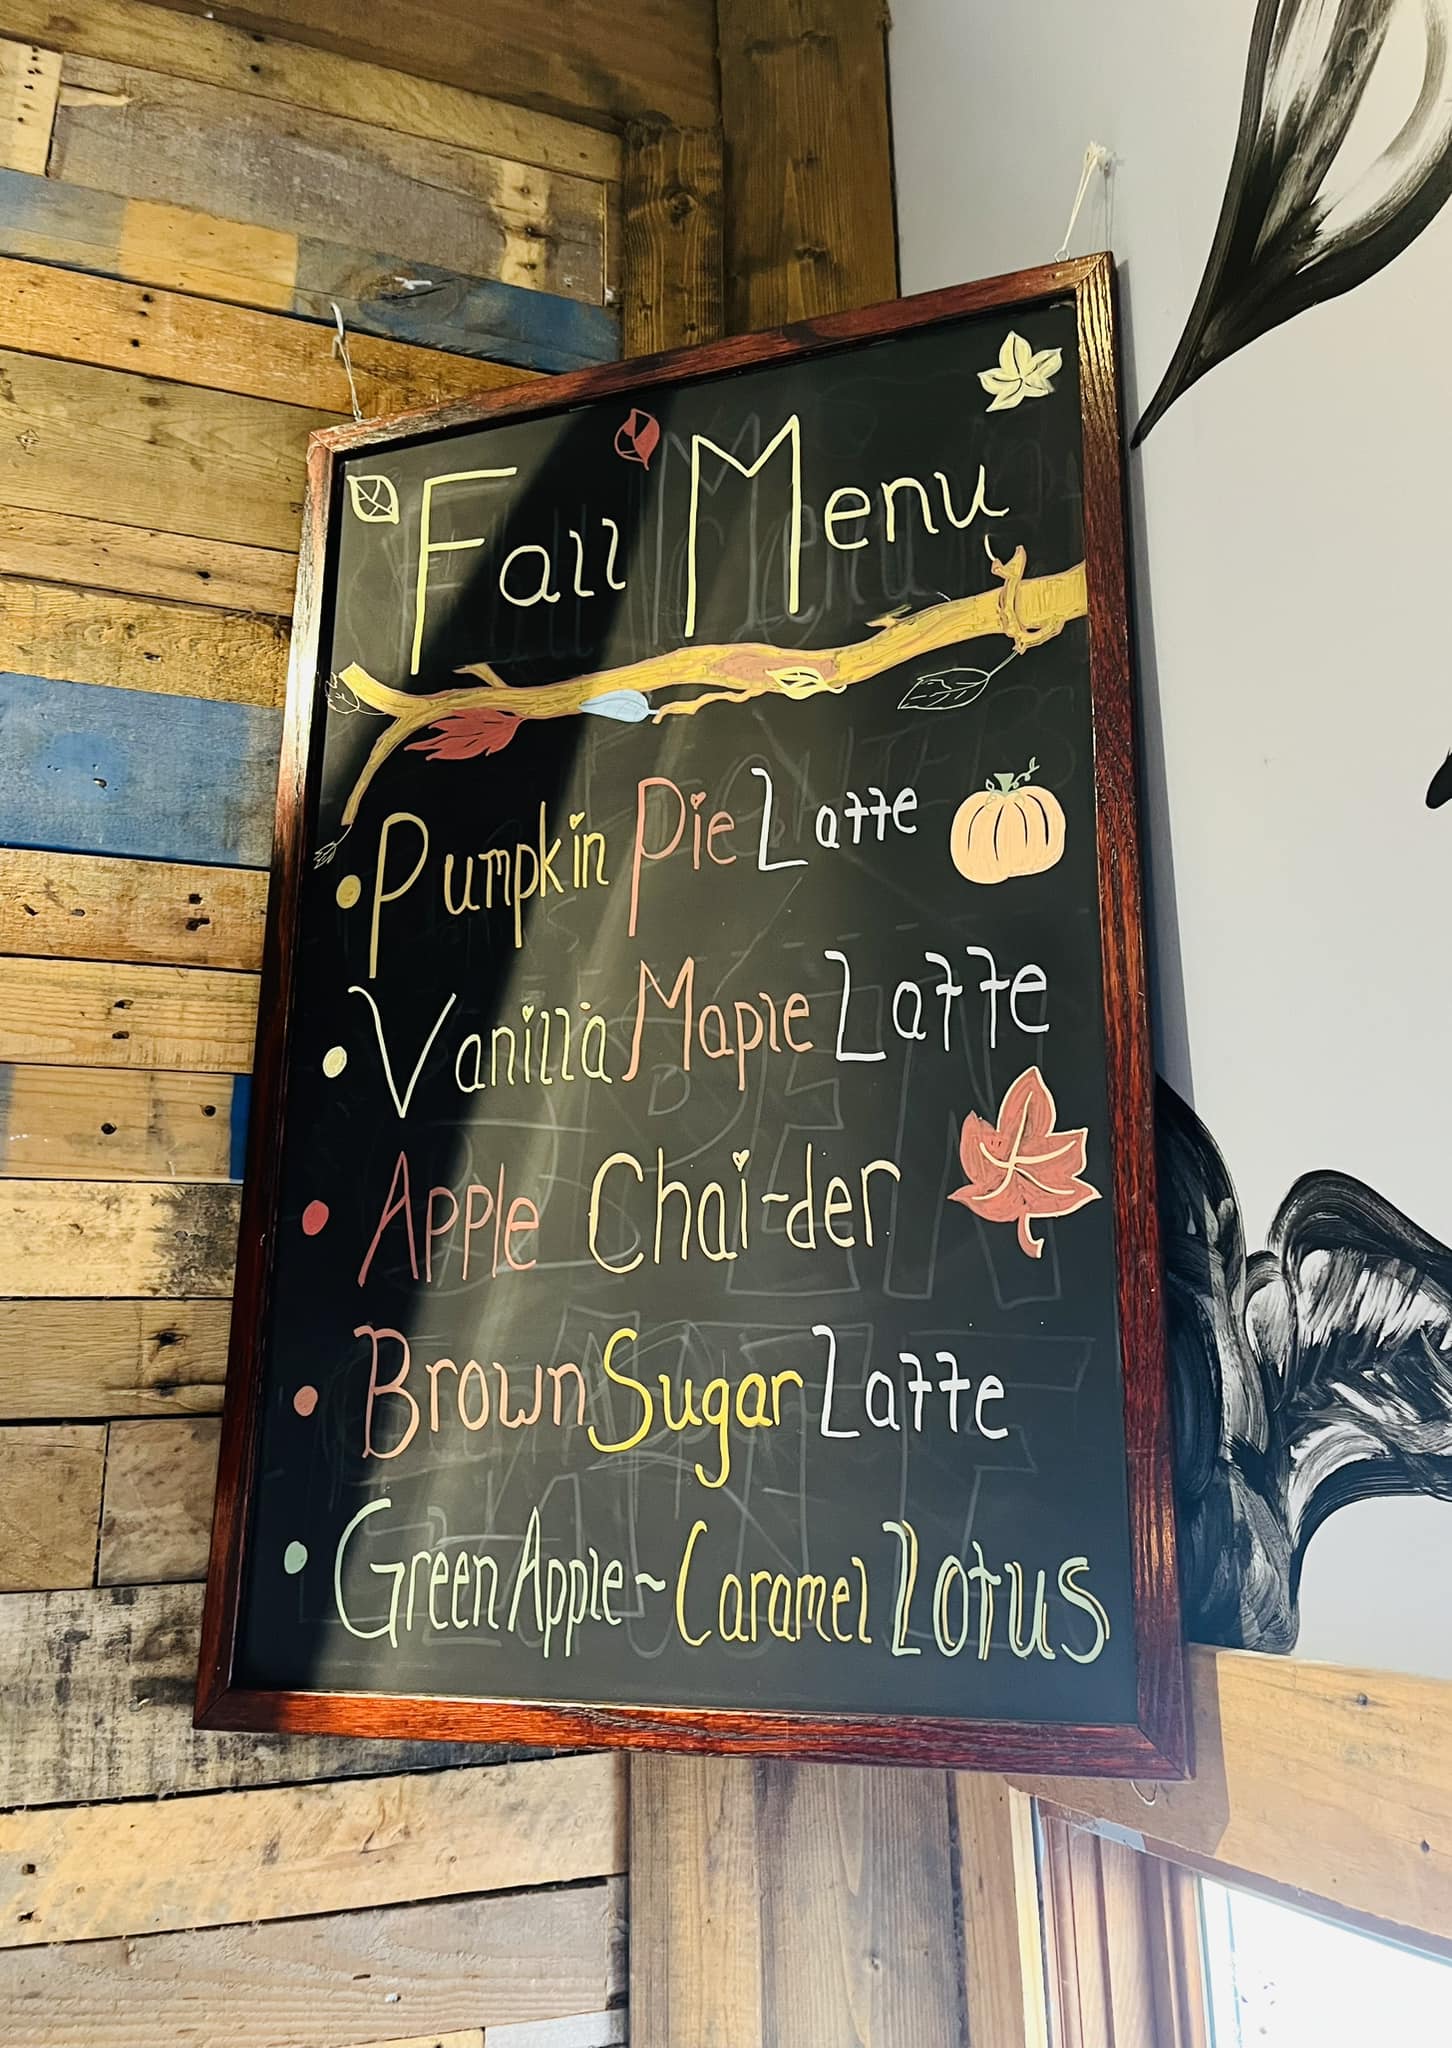 Fall Menu
Pumpkin Pie Latte
Vanilla Maple Latte
Apple Chai-der
Brown Sugar Latte
Green Apple ~ Caramel Lotus